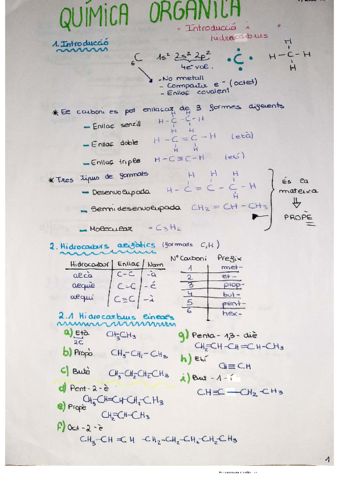 QUÍMICA ORGÀNICA
- Introducció
hidrocarburs
1. Introducció
6 C 1s² 2s² 2p²
4e⁻ val.
C
H
H - C - H
H
- No metall
- Comparteix e⁻ (octet)
- Enllaç covalent
* El carboni es pot enllaçar de 3 formes diferents
- Enllaç senzill H - C - C - H
- Enllaç doble H - C = C - H (età)
- Enllaç triple H - C ≡ C - H (etí)
* Tres tipus de formules
- Desenvolupada H - C = C - C - H
- Semidesenvolupada CH₂ = CH - CH₃
- Molecular - C₃H₆
és la
mateixa
PROPÈ
2. Hidrocarburs alifàtics (formats C,H)
Hidrocarbur Enllaç Nom
alcà C-C -à
alquè C=C -è
alquí C≡C -í
Nº Carboni Prefix
1 met-
2 et-
3 prop-
4 but-
5 pent-
6 hex-
2.1 Hidrocarburs lineals
a) Età CH₃CH₃
2C
b) Propà CH₃-CH₂-CH₃
c) Butà CH₃-CH₂CH₂CH₃
d) Pent-2-è
CH₃-CH=CH-CH₂-CH₃
e) Propè
CH₂=CH-CH₃
f) Oct-2-è
CH₃-CH=CH-CH₂-CH₂-CH₂-CH₂-CH₃
g) Penta-1,3-diè
CH₂=CH-CH=CH-CH₃
h) Etí
CH≡CH
i) But-1-í
CH≡C-CH₂-CH₃
1